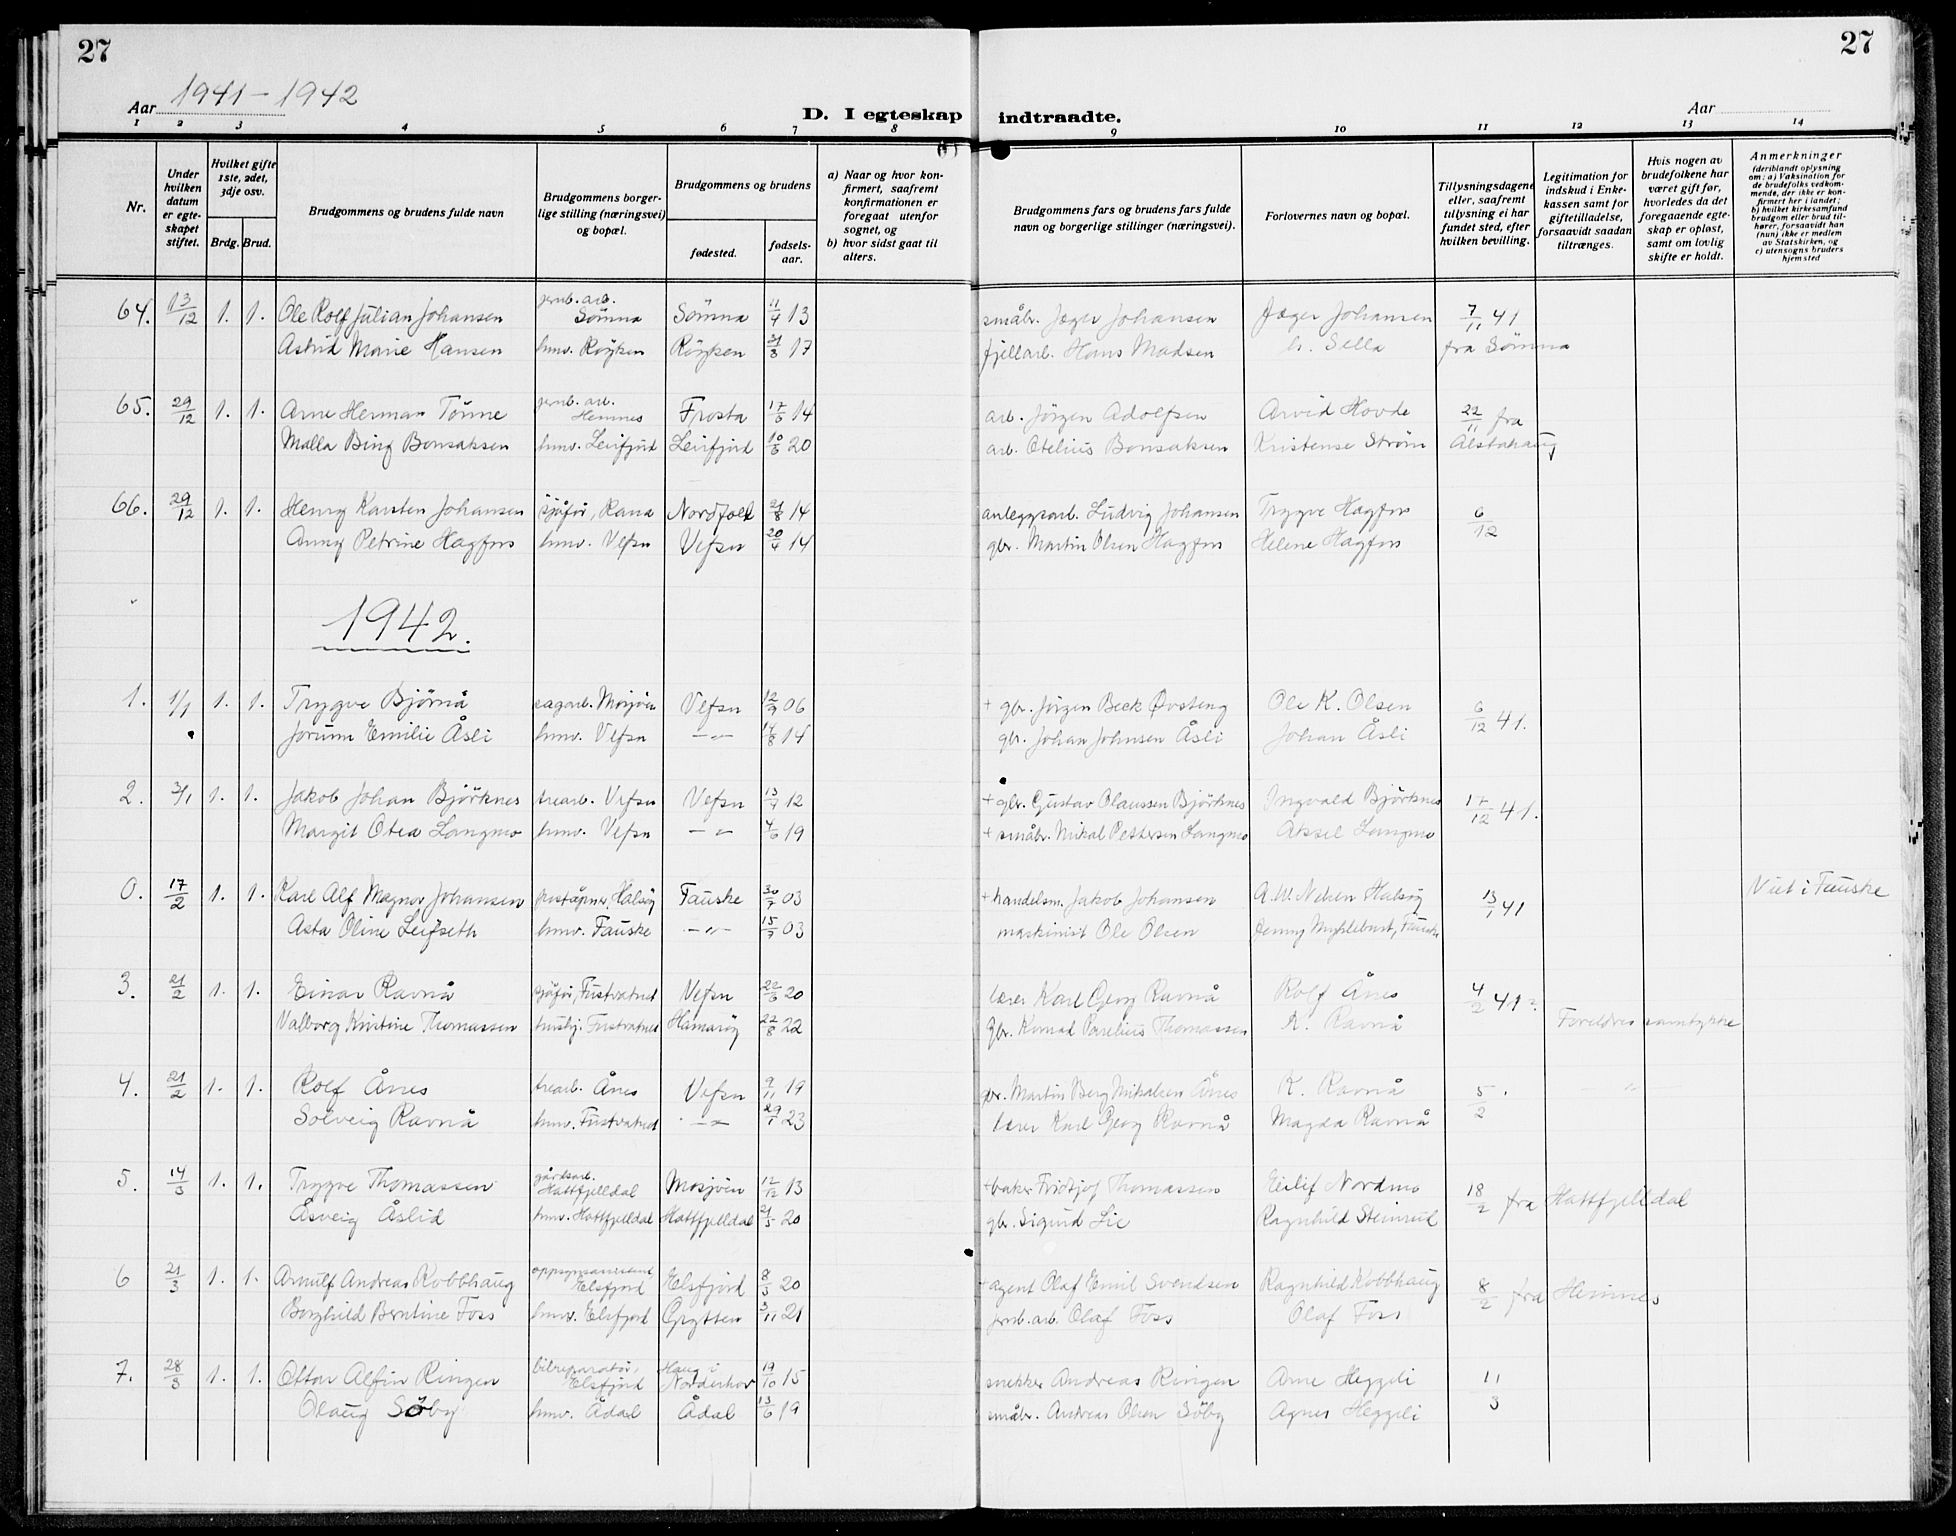 27
27
Aar 1941-1942
D. I egteskap indtraadte.
Aar
1 2 3 4 5 6 7 8 9 10 11 12 13 14
Nr.
Under hvilken datum er egteskapet stiftet.
Hvilket gifte 1ste, 2det, 3dje osv.
Brdg. Brud.
Brudgommens og brudens fulde navn
Brudgommens borgerlige stilling (næringsvei) og bopæl.
Brudgommens og brudens
fødested.
fødselsaar.
a) Naar og hvor konfirmert, saafremt konfirmationen er foregaat utenfor sognet, og
b) hvor sidst gaat til alters.
Brudgommens fars og brudens fars fulde navn og borgerlige stillinger (næringsvei).
Forlovernes navn og bopæl.
Tillysningsdagene eller, saafremt tillysning ei har fundet sted, efter hvilken bevilling.
Legitimation for indskud i Enkekassen samt for giftetilladelse, forsaavidt saadan tiltrænges.
Hvis nogen av brudefolkene har været gift før, hvorledes da det foregaaende egteskap er opløst, samt om lovlig skifte er holdt.
Anmerkninger (deriblandt oplysning om: a) Vaksination for de brudefolks vedkommende, der ikke er konfirmert her i landet; b) hvilket kirkesamfund brudgom eller brud tilhører, forsaavidt han (hun) ikke er medlem av Statskirken, og c) utensogns bruders hjemsted
64. 13/12 1. 1. Ole Rolf Julian Johansen jernb. arb. Sömna Sömna 11/4 13 småbr. Jæger Johansen Jæger Johansen 7/11 41
Astrid Marie Hansen hmv. Röyken Röyken 31/3 17 fjellarb. Hans Madsen Sella fra Sömna
65. 29/12 1. 1. Arne Herman Tönne jernb. arb. Hemnes Frosta 14 arb. Jörgen Adolfsen Arvid Hovde 22/11 fra
Malla Bing Bonsaksen hmv. Leirfjord Leirfjord 20 arb. Otelius Bonsaksen Kristense Ström Alstahaug
66. 29/12 1. 1. Henry Karsten Johansen sjåför, Rana Nordfold 21/8 14 anleggsarb. Ludvig Johansen Trygve Hagfors 6/12
Anny Petrine Hagfors hmv. Vefsn Vefsn 20/4 14 gbr. Martin Olsen Hagfors Helene Hagfors
1942.
1. 1/1 1. 1. Trygve Björnå sagarb. Mosjöen Vefsn 12/9 06 + gbr. Jörgen Beck Øvsteng Ole K. Olsen 6/12 41.
Jorunn Emilie Åsli hmv. Vefsn -"- 14/8 14 gbr. Johan Johnsen Åsli Johan Åsli
2. 3/1 1. 1. Jakob Johan Björknes trearb. Vefsn Vefsn 12 + gbr. Gustav Olaussen Björknes Ingvald Björknes 17/12 41.
Margit Otea Langmo hmv. Vefsn -"- 4/6 19 + småbr. Mikal Pettersen Langmo Aksel Langmo
0. 17/2 1. 1. Karl Alf Magnor Johansen poståpner, Halsöy Fauske 30/7 03 + handelsm. Jakob Johansen Nelsen Halsöy 13/1 41 Viet i Fauske
Asta Oline Leifseth hmv. Fauske -"- 03 maskinist Ole Olsen Jenny Myklebust, Fauske
3. 21/2 1. 1. Einar Ravnå sjåför, Fustvatnet Vefsn 20 lærer Karl Georg Ravnå Rolf Ånes 4/2 41?
Valborg Kristine Thomassen hushj. Fustvatnet Hamaröy 22/8 22 gbr. Konrad Parelius Thomassen K. Ravnå Foreldres samtykke
4. 21/2 1. 1. Rolf Ånes trearb. Ånes Vefsn 9/11 19 gbr. Martin Berg Mikalsen Ånes K. Ravnå 5/2 "
Solveig Ravnå hmv. Fustvatnet -"- 23 lærer Karl Georg Ravnå Magda Ravnå
5. 14/3 1. 1. Trygve Thomassen gårdsarb. Hattfjelldal Mosjöen 12/12 13 + baker Fridtjof Thomassen Eilif Nordmo 18/2 fra Hattfjelldal
Åsveig Åslid hmv. Hattfjelldal Hattfjelldal 21/5 20 gbr. Sigurd Lie Ragnhild Steinrud
6 21/3 1. 1. Arnulf Andreas Kobbhaug Elsfjord Elsfjord 20 + agent Olaf Emil Svendsen Ragnhild Kobbhaug 8/2 fra Hemnes
Borghild Berntine Foss hmv. Elsfjord Grytten 3/11 21 jernb. arb. Olaf Foss Olaf Foss
7. 28/3 1. 1. Ottar Alfin Ringen bilreparatör, Elsfjord Haug i Norderhov 19/10 15 snekker Andreas Ringen Arne Heggeli 11/3
Olaug Söby hmv. Ådal Ådal 13/6 19 småbr. Andreas Olsen Söby Agnes Heggeli